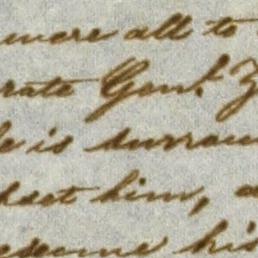 were all to
rate Genl. Z
e is surroun
set him, a
esume his